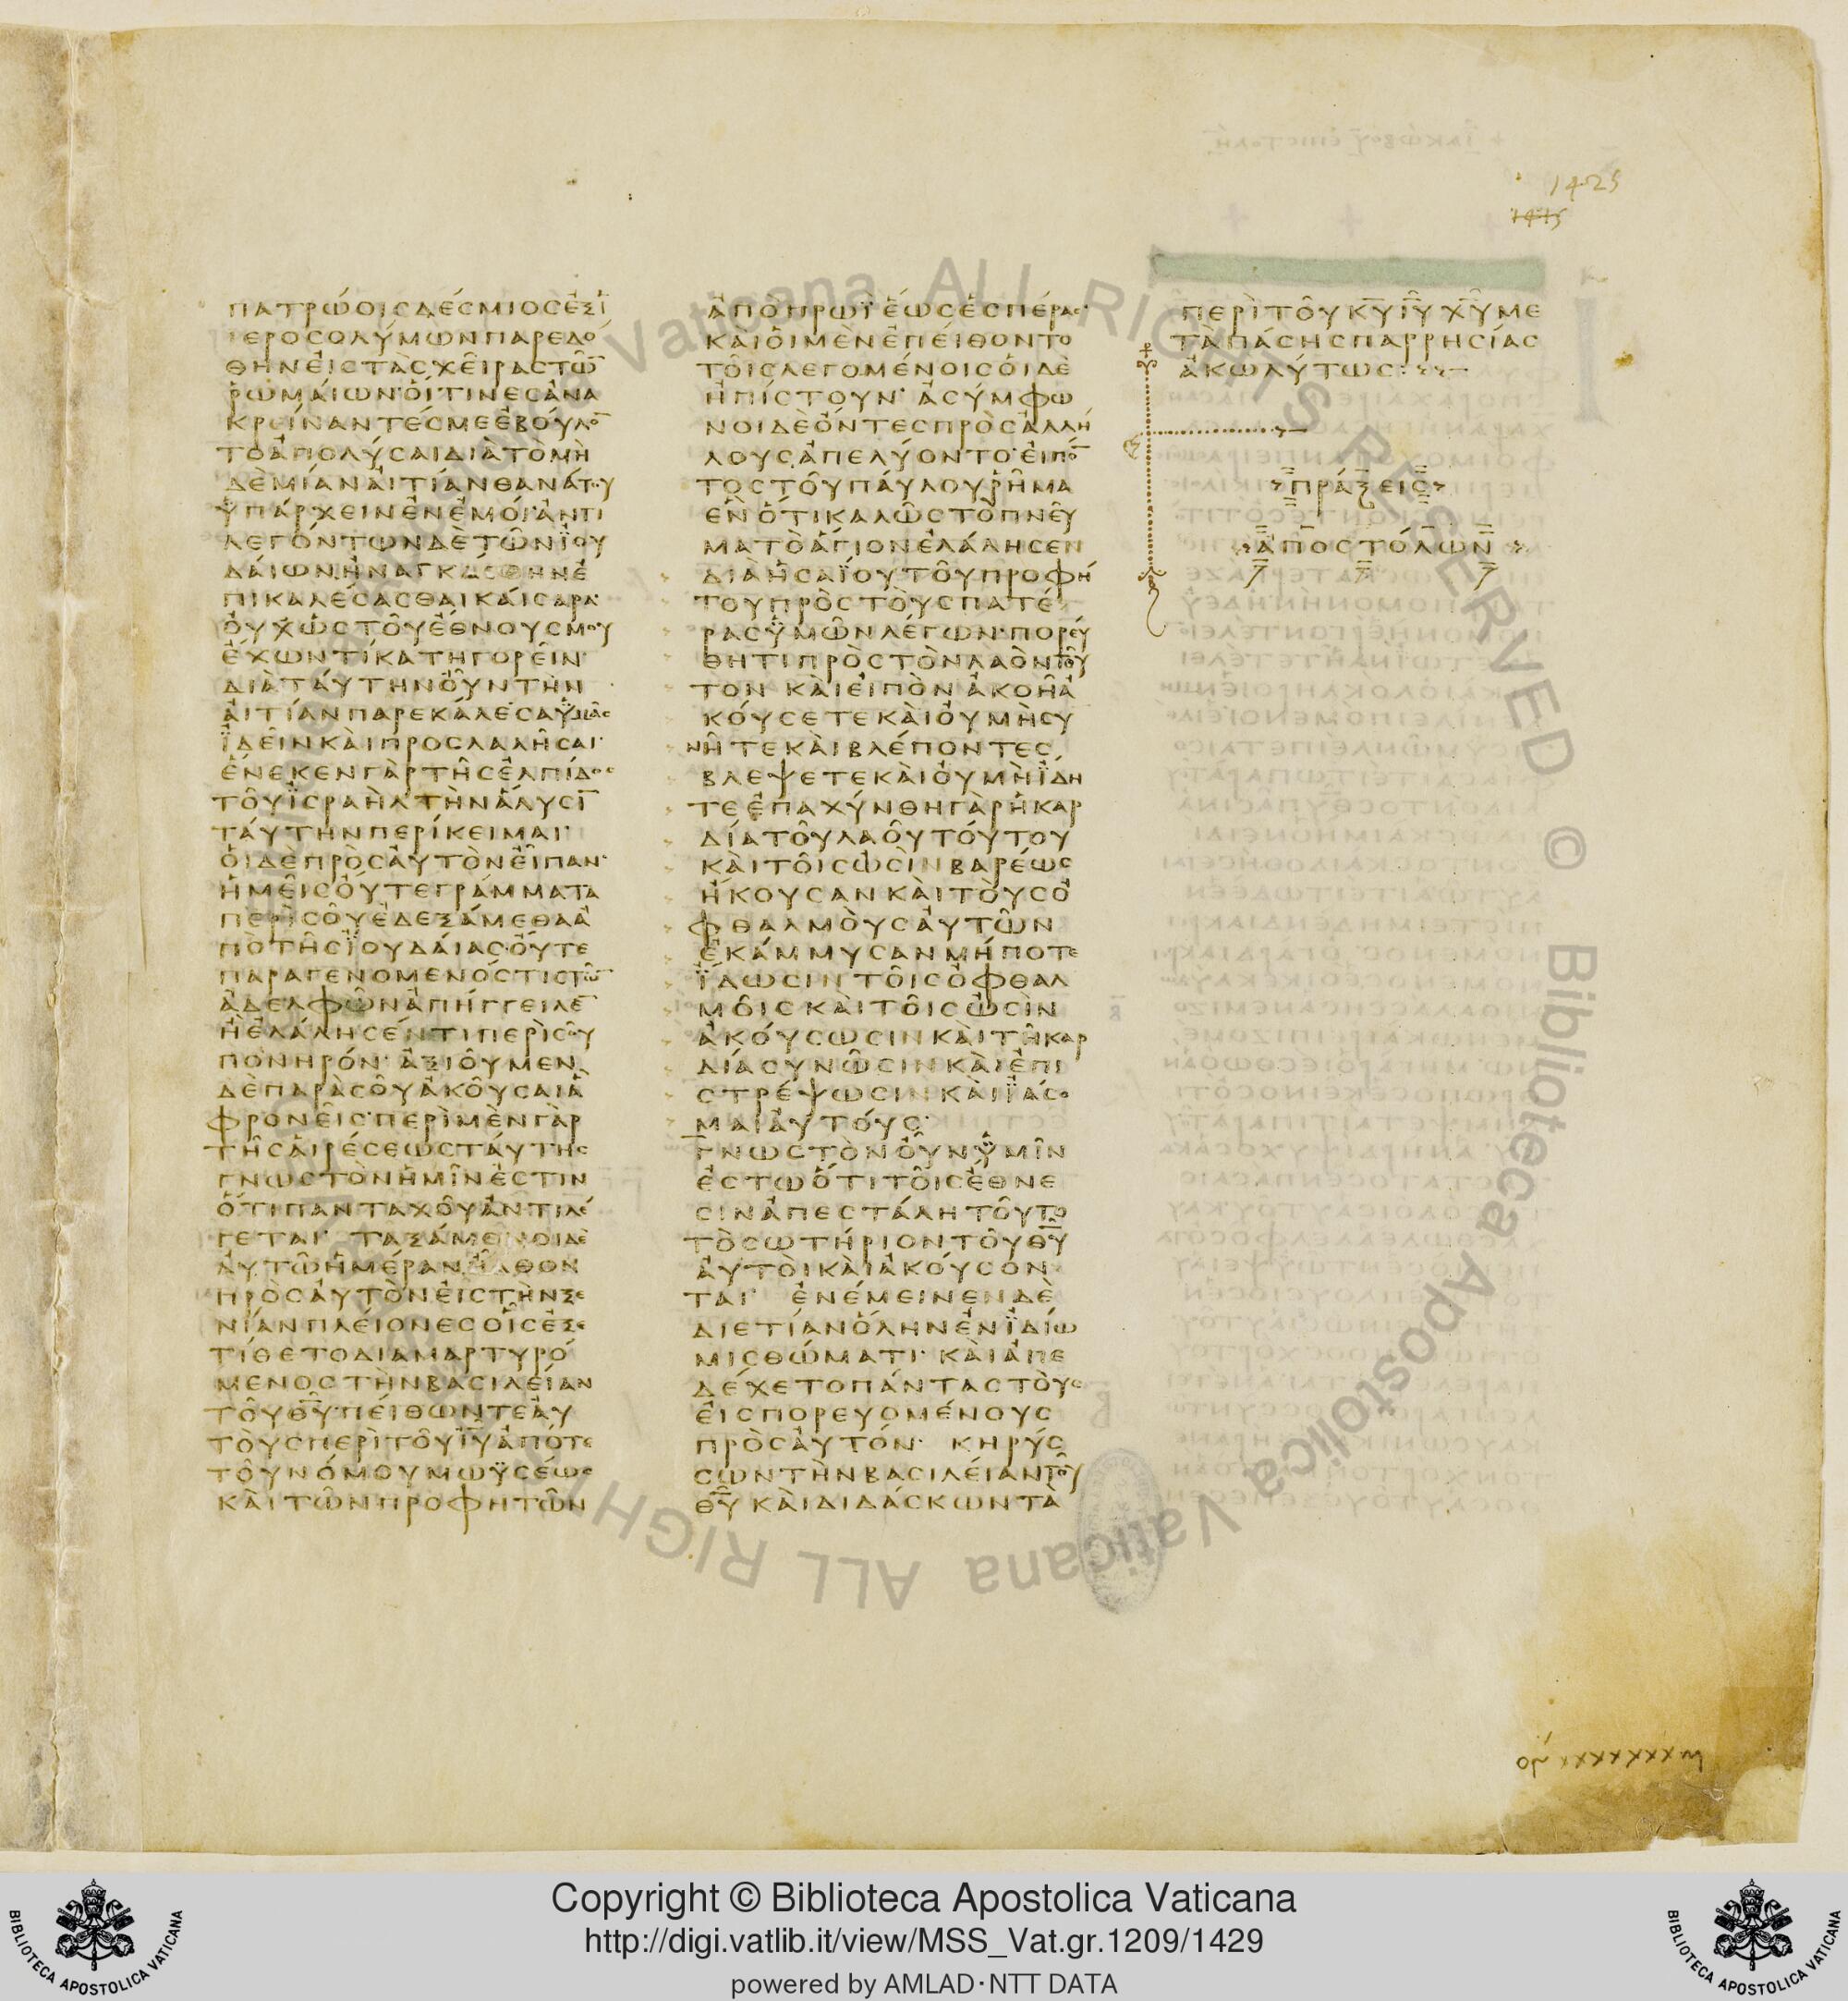 1425
1415
ΠΑΤΡΩΟΙCΔΕCΜΙΟCΕΞΙ
ΕΡΟCΟΛΥΜΩΝΠΑΡΕΔΟ
ΘΗΝΕΙCΤΑCΧΕΙΡΑCΤΩ̅
ΡΩΜΑΙΩΝ·ΟΙΤΙΝΕCΑΝΑ
ΚΡΕΙΝΑΝΤΕCΜΕΕΒΟΥΛΟ̅
ΤΟΑΠΟΛΥCΑΙΔΙΑΤΟΜΗ
ΔΕΜΙΑΝΑΙΤΙΑΝΘΑΝΑΤΟΥ
ΥΠΑΡΧΕΙΝΕΝΕΜΟΙ·ΑΝΤΙ
ΛΕΓΟΝΤΩΝΔΕΤΩΝΪΟΥ
ΔΑΙΩΝΗΝΑΓΚΑCΘΗΝΕ
ΠΙΚΑΛΕCΑCΘΑΙΚΑΙCΑΡΑ·
ΟΥΧΩCΤΟΥΕΘΝΟΥCΜΟΥ
ΕΧΩΝΤΙΚΑΤΗΓΟΡΕΙΝ·
ΔΙΑΤΑΥΤΗΝΟΥΝΤΗΝ
ΑΙΤΙΑΝΠΑΡΕΚΑΛΕCΑΫΜΑC
ΪΔΕΙΝΚΑΙΠΡΟCΛΑΛΗCΑΙ·
ΕΝΕΚΕΝΓΑΡΤΗCΕΛΠΙΔΟC
ΤΟΥΪCΡΑΗΛΤΗΝΑΛΥCΙ̅
ΤΑΥΤΗΝΠΕΡΙΚΕΙΜΑΙ·
ΟΙΔΕΠΡΟCΑΥΤΟΝΕΙΠΑΝ·
ΗΜΕΙCΟΥΤΕΓΡΑΜΜΑΤΑ
ΠΕΡΙCΟΥΕΔΕΞΑΜΕΘΑΑ
ΠΟΤΗCΪΟΥΔΑΙΑC·ΟΥΤΕ
ΠΑΡΑΓΕΝΟΜΕΝΟCΤΙCΤΩ̅
ΑΔΕΛΦΩΝΑΠΗΓΓΕΙΛΕ̅
ΗΕΛΑΛΗCΕΝΤΙΠΕΡΙCΟΥ
ΠΟΝΗΡΟΝ· ΑΞΙΟΥΜΕΝ
ΔΕΠΑΡΑCΟΥΑΚΟΥCΑΙΑ
ΦΡΟΝΕΙC·ΠΕΡΙΜΕΝΓΑΡ
ΤΗCΑΙΡΕCΕΩCΤΑΥΤΗC
ΓΝΩCΤΟΝΗΜΙΝΕCΤΙΝ
ΟΤΙΠΑΝΤΑΧΟΥΑΝΤΙΛΕ
ΓΕΤΑΙ· ΤΑΞΑΜΕΝΟΙΔΕ
ΑΥΤΩΗΜΕΡΑΝΗΛΘΟΝ
ΠΡΟCΑΥΤΟΝΕΙCΤΗΝΞΕ
ΝΙΑΝΠΛΕΙΟΝΕCΟΙCΕΞΕ
ΤΙΘΕΤΟΔΙΑΜΑΡΤΥΡΟ
ΜΕΝΟCΤΗΝΒΑCΙΛΕΙΑΝ
ΤΟΥΘ̅Υ̅·ΠΕΙΘΩΝΤΕΑΥ
ΤΟΥCΠΕΡΙΤΟΥΙ̅Υ̅ΑΠΟΤΕ
ΤΟΥΝΟΜΟΥΜΩΫCΕΩC
ΚΑΙΤΩΝΠΡΟΦΗΤΩΝ
ΑΠΟΠΡΩΪΕΩCΕCΠΕΡΑC·
ΚΑΙΟΙΜΕΝΕΠΕΙΘΟΝΤΟ
ΤΟΙCΛΕΓΟΜΕΝΟΙCΟΙΔΕ
ΗΠΙCΤΟΥΝ· ΑCΥΜΦΩ
ΝΟΙΔΕΟΝΤΕCΠΡΟCΑΛΛΗ
ΛΟΥCΑΠΕΛΥΟΝΤΟ·ΕΙΠΟ̅
ΤΟCΤΟΥΠΑΥΛΟΥΡΗΜΑ
ΕΝΟΤΙΚΑΛΩCΤΟΠΝΕΥ
ΜΑΤΟΑΓΙΟΝΕΛΑΛΗCΕΝ
ΔΙΑΗCΑΪΟΥΤΟΥΠΡΟΦΗ
ΤΟΥΠΡΟCΤΟΥCΠΑΤΕ
ΡΑCΫΜΩΝΛΕΓΩΝ·ΠΟΡΕΥ
ΘΗΤΙΠΡΟCΤΟΝΛΑΟΝΤΟΥ
ΤΟΝ ΚΑΙΕΙΠΟΝΑΚΟΗΑ
ΚΟΥCΕΤΕΚΑΙΟΥΜΗCΥ
ΝΗΤΕΚΑΙΒΛΕΠΟΝΤΕC
ΒΛΕΨΕΤΕΚΑΙΟΥΜΗΪΔΗ
ΤΕΕΠΑΧΥΝΘΗΓΑΡΗΚΑΡ
ΔΙΑΤΟΥΛΑΟΥΤΟΥΤΟΥ
ΚΑΙΤΟΙCΩCΙΝΒΑΡΕΩC
ΗΚΟΥCΑΝΚΑΙΤΟΥCΟ
ΦΘΑΛΜΟΥCΑΥΤΩΝ
ΕΚΑΜΜΥCΑΝΜΗΠΟΤΕ
ΪΔΩCΙΝΤΟΙCΟΦΘΑΛ
ΜΟΙCΚΑΙΤΟΙCΩCΙΝ
ΑΚΟΥCΩCΙΝΚΑΙΤΗΚΑΡ
ΔΙΑCΥΝΩCΙΝΚΑΙΕΠΙ
CΤΡΕΨΩCΙΝΚΑΙΪΑCΟ
ΜΑΙΑΥΤΟΥC·
ΓΝΩCΤΟΝΟΥΝΫΜΙΝ
ΕCΤΩΟΤΙΤΟΙCΕΘΝΕ
CΙΝΑΠΕCΤΑΛΗΤΟΥΤΟ
ΤΟCΩΤΗΡΙΟΝΤΟΥΘ̅Υ̅
ΑΥΤΟΙΚΑΙΑΚΟΥCΟΝ
ΤΑΙ· ΕΝΕΜΕΙΝΕΝΔΕ
ΔΙΕΤΙΑΝΟΛΗΝΕΝΪΔΙΩ
ΜΙCΘΩΜΑΤΙ· ΚΑΙΑΠΕ
ΔΕΧΕΤΟΠΑΝΤΑCΤΟΥC
ΕΙCΠΟΡΕΥΟΜΕΝΟΥC
ΠΡΟCΑΥΤΟΝ· ΚΗΡΥC
CΩΝΤΗΝΒΑCΙΛΕΙΑΝΤΟΥ
Θ̅Υ̅ ΚΑΙΔΙΔΑCΚΩΝΤΑ
ΠΕΡΙΤΟΥΚ̅Υ̅Ι̅Υ̅Χ̅Υ̅ΜΕ
ΤΑΠΑCΗCΠΑΡΡΗCΙΑC
ΑΚΩΛΥΤΩC
ΠΡΑΞΕΙC
ΑΠΟCΤΟΛΩΝ
Copyright © Biblioteca Apostolica Vaticana
http://digi.vatlib.it/view/MSS_Vat.gr.1209/1429
powered by AMLAD·NTT DATA
BIBLIOTECA APOSTOLICA VATICANA
BIBLIOTECA APOSTOLICA VATICANA
© Biblioteca Apostolica Vaticana ALL RIGHTS RESERVED